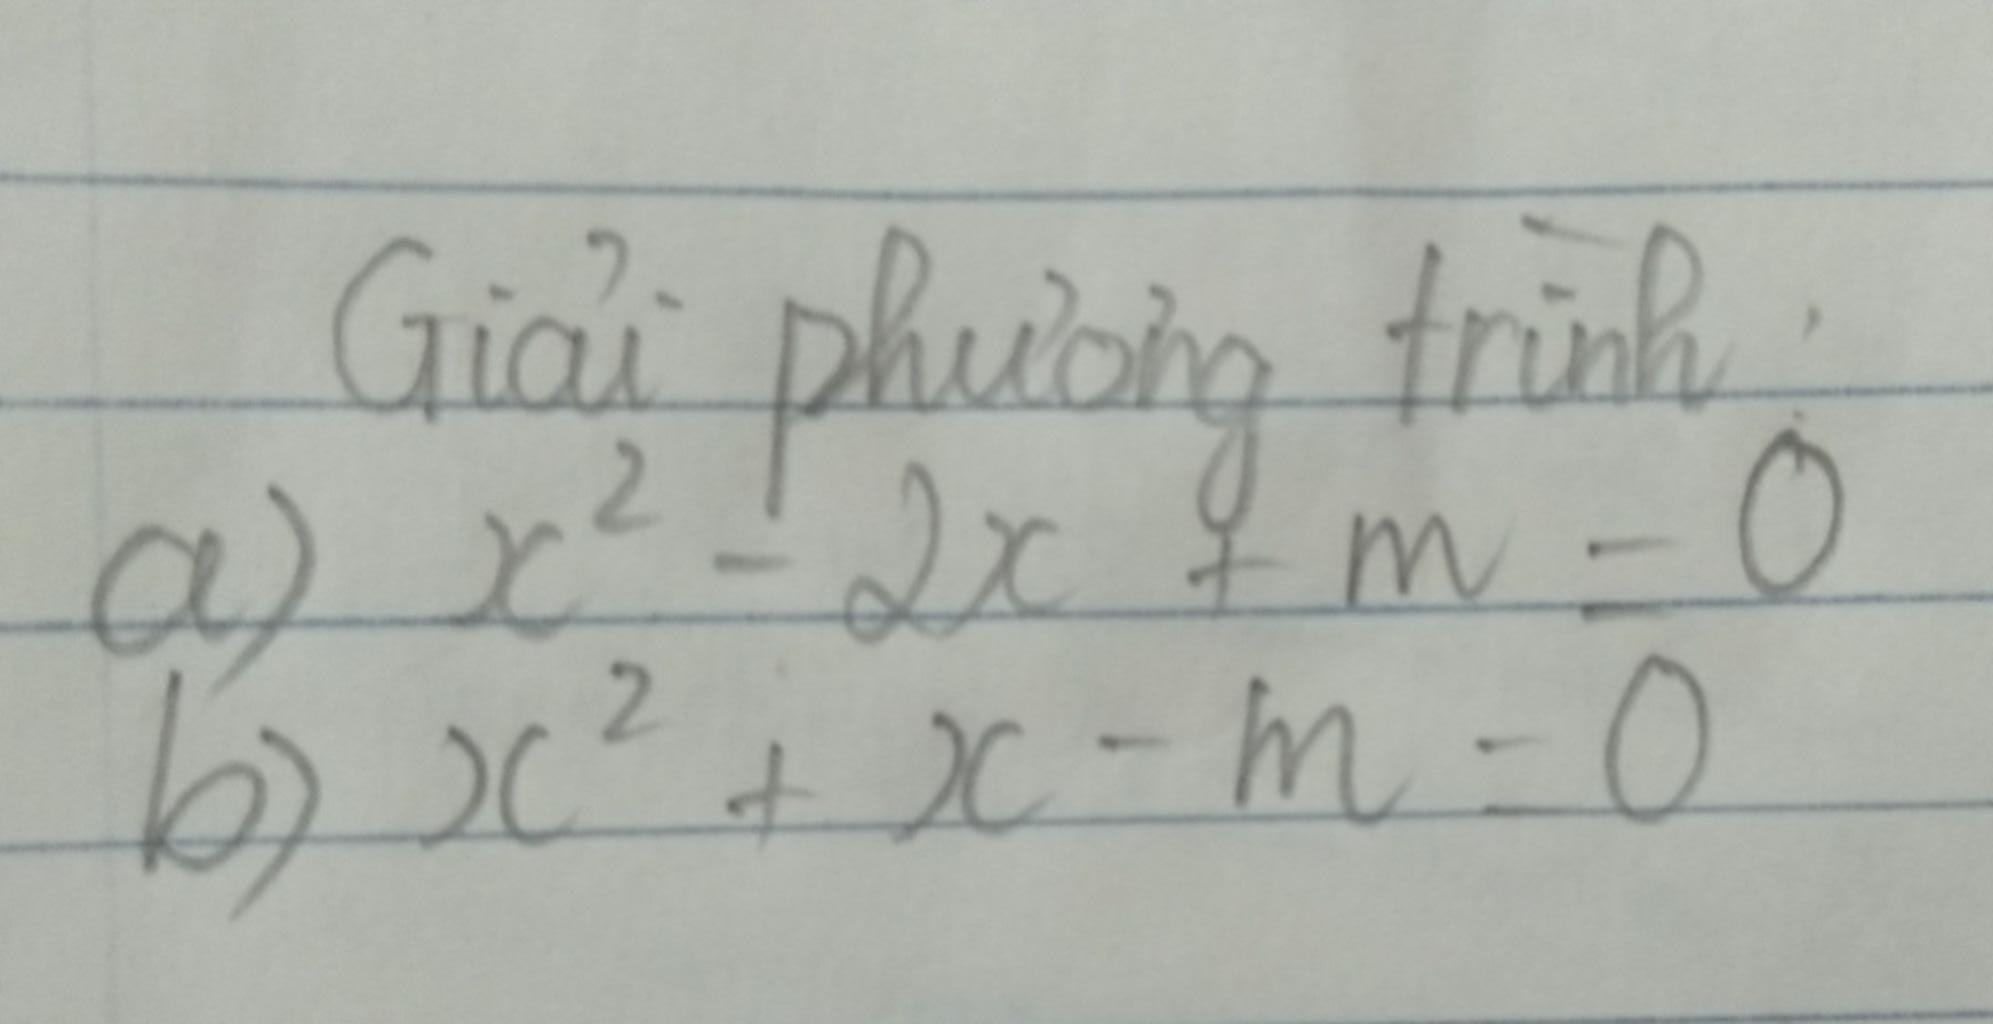 Giải phương trình:
a) x² - 2x + m = 0
b) x² + x - m = 0